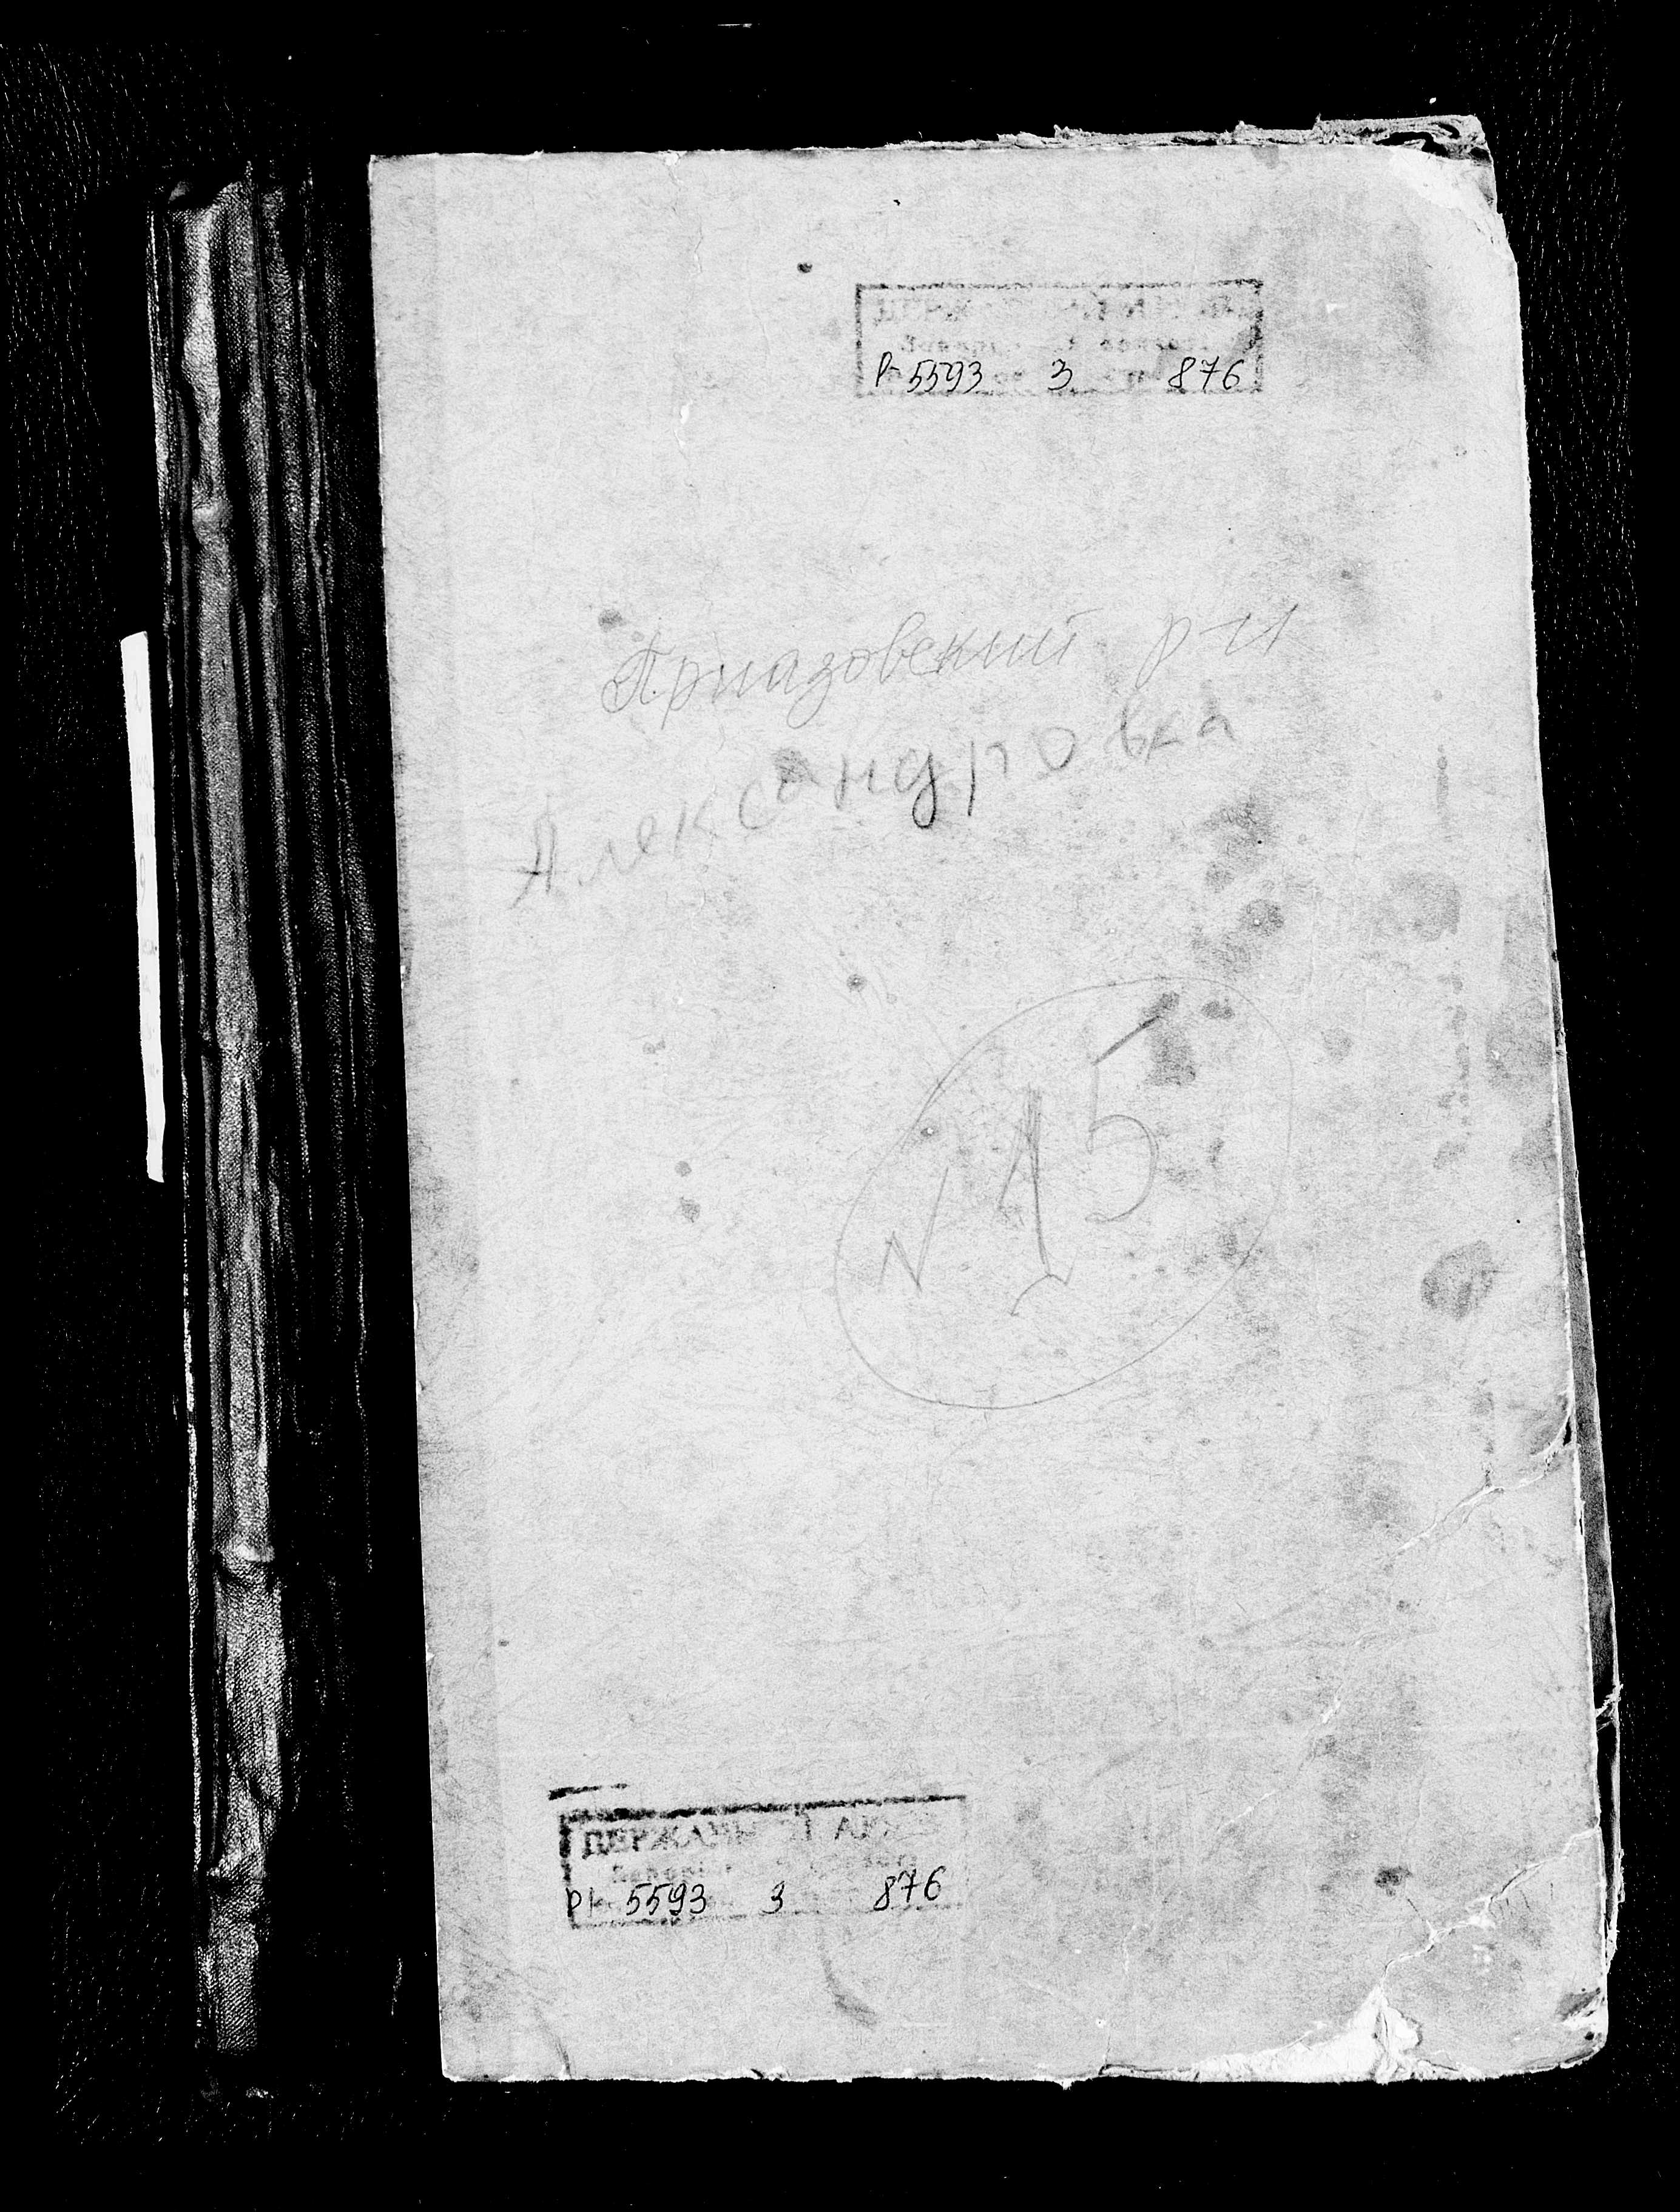 Р-5593 3 876
Приазовский р-н
Александровка
N 15
ДЕРЖАВНИЙ АРХІВ
Р- 5593 3 876